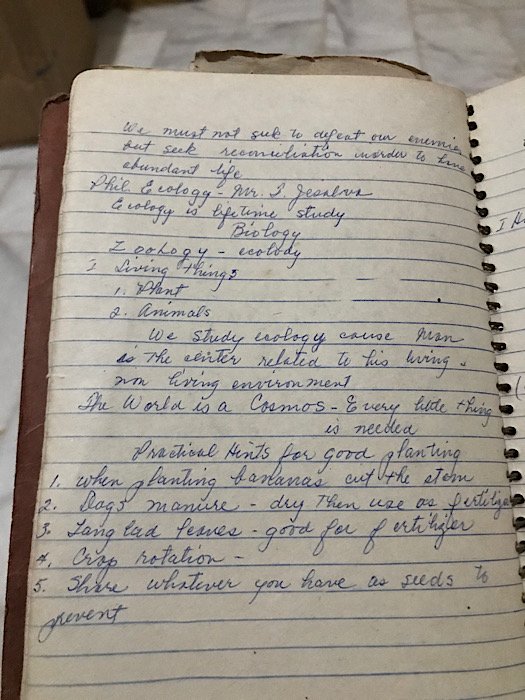 We must not seek to defeat our enemies
but seek reconciliation inorder to have
abundant life
Phil Ecology - Mr. I. Jesalva
Ecology is lifetime study
Biology
Zoology - ecolody
I Living things
1. Plant
2. Animals
We study ecology cause Man
is the center related to his living -
non living environment
The World is a Cosmos - Every little thing
is needed
Practical Hints for good planting
1. when planting bananas cut the stem
2. Dags manure - dry then use as fertilizer
3. Lang lad leaves - good for fertilizer
4. Crop rotation -
5. Share whatever you have as seeds to
prevent